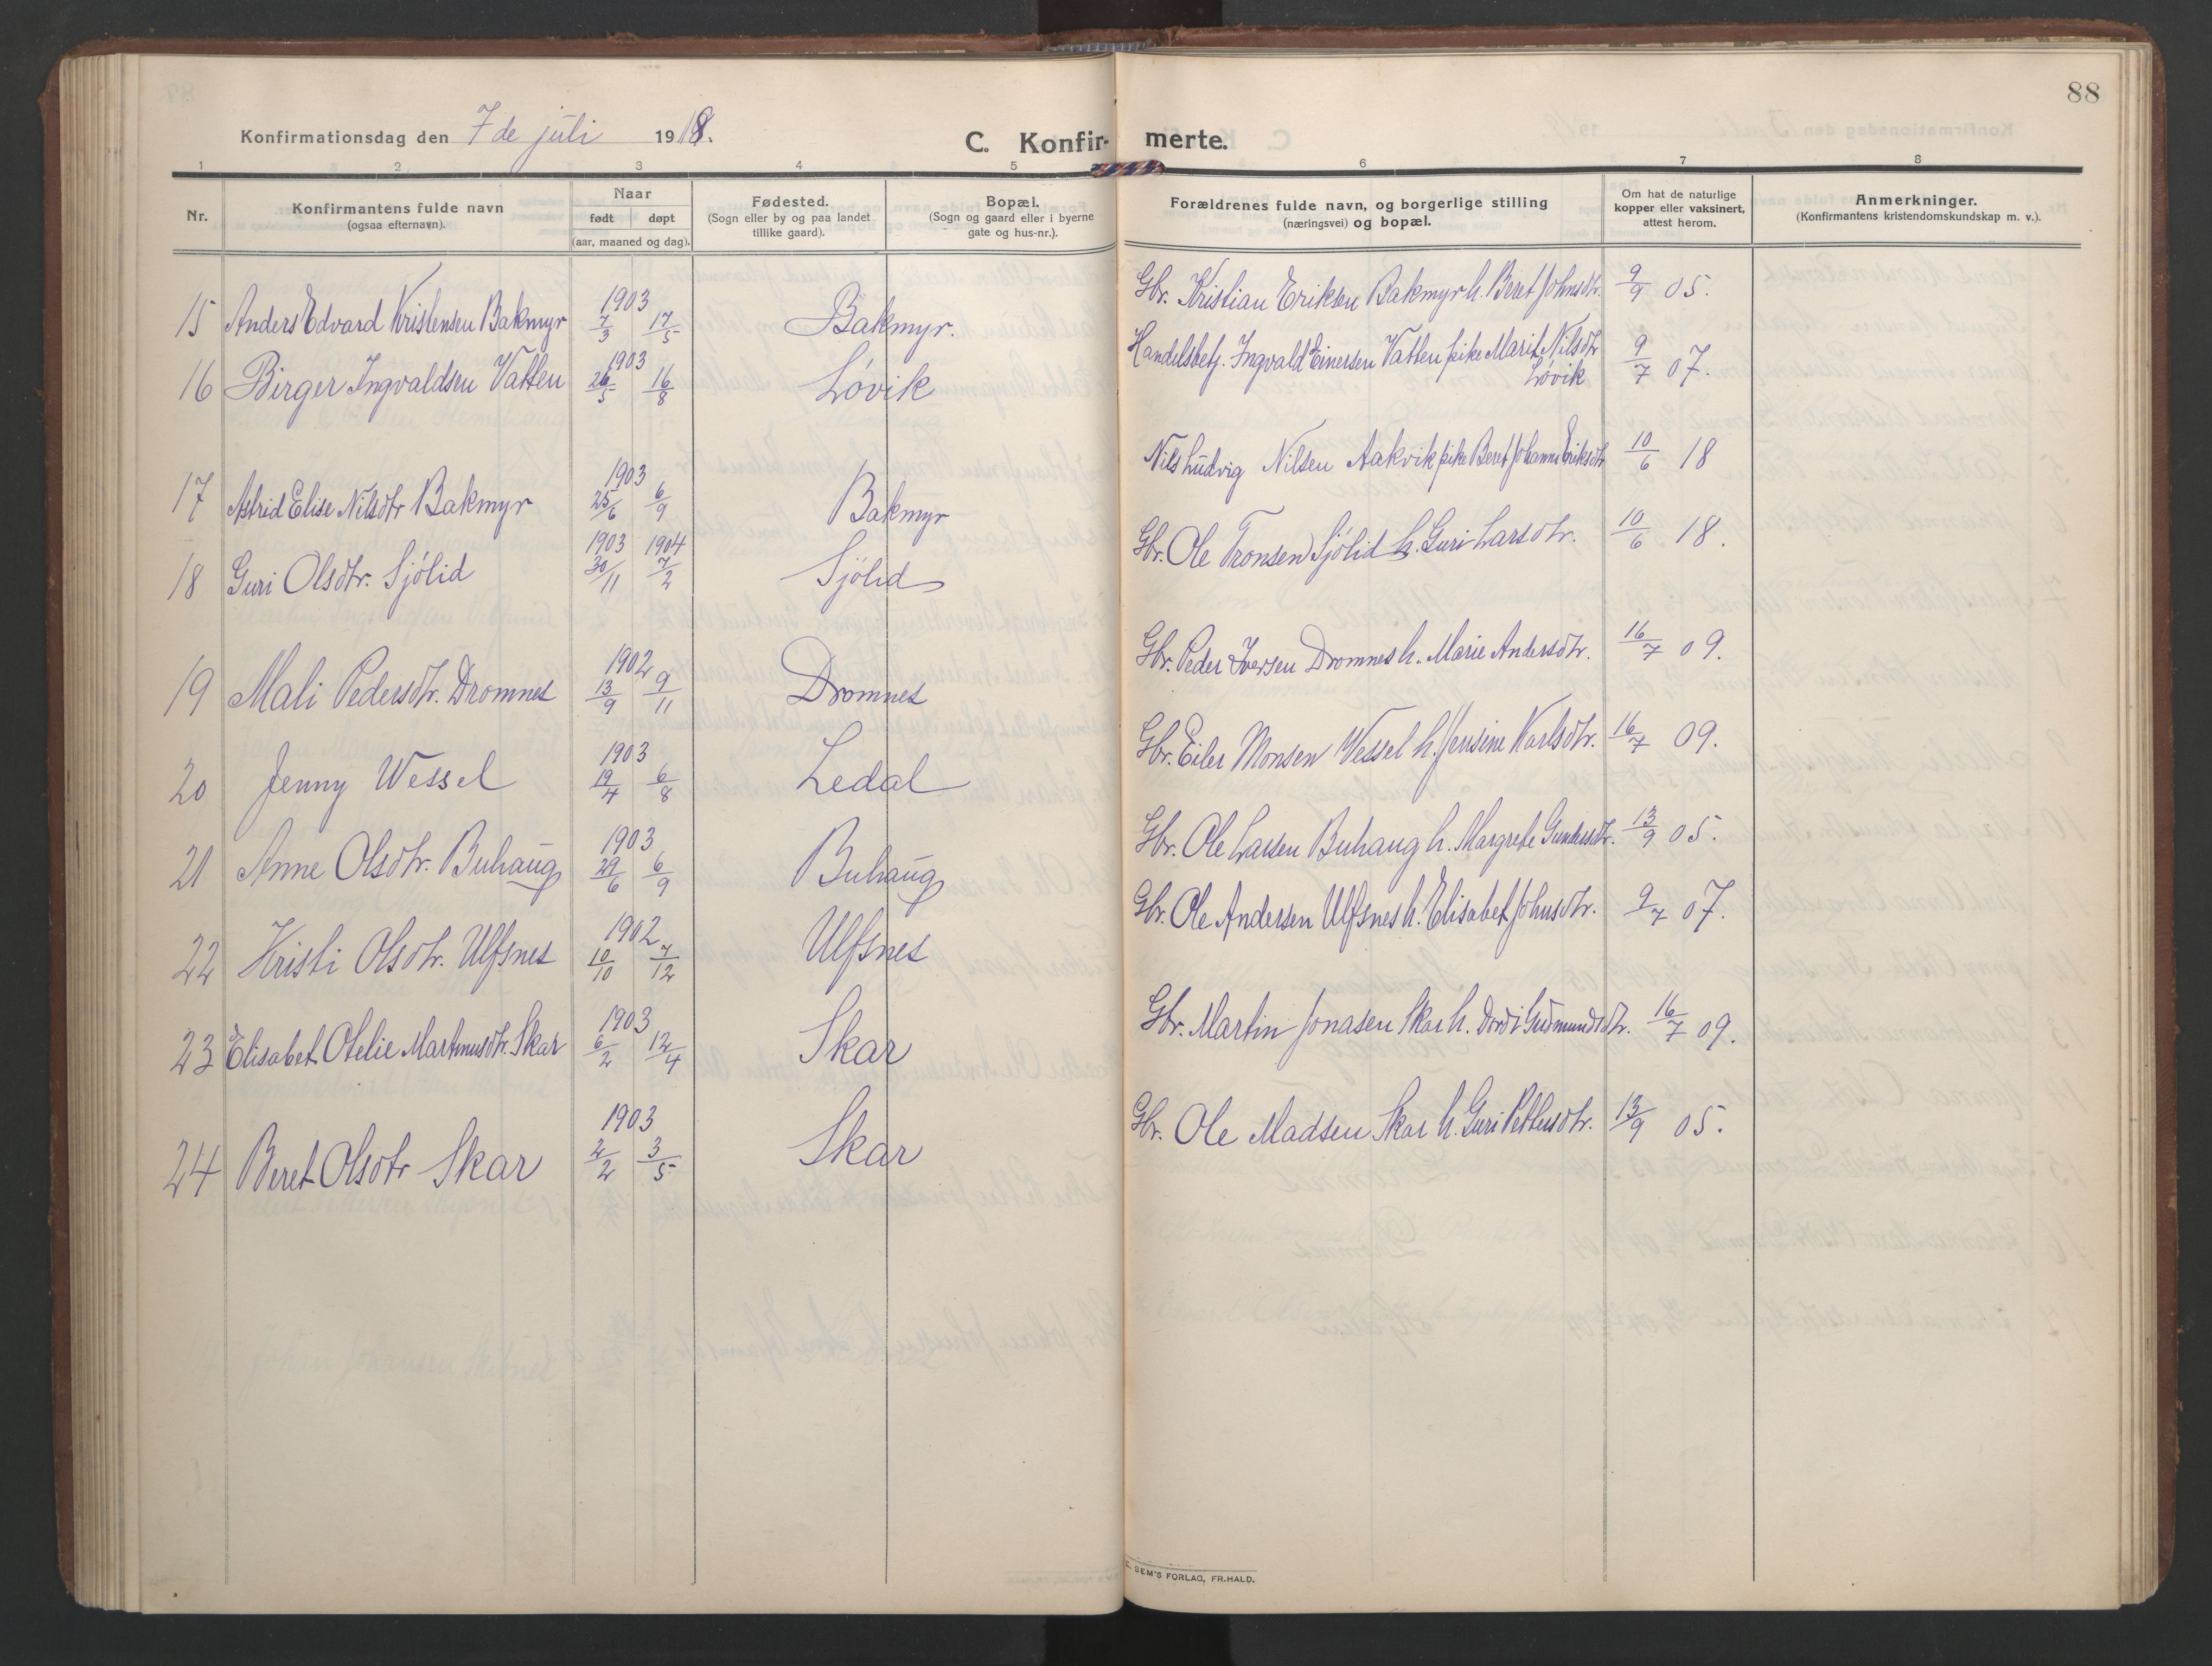 88
Konfirmationsdag den 7de juli 1918.
C. Konfir- merte.
1 2 3 4 5 6 7 8
Nr.
Konfirmantens fulde navn
(ogsaa efternavn).
Naar
født døpt
(aar, maaned og dag).
Fødested.
(Sogn eller by og paa landet
tillike gaard).
Bopæl.
(Sogn og gaard eller i byerne
gate og hus-nr.).
Forældrenes fulde navn, og borgerlige stilling
(næringsvei) og bopæl.
Om hat de naturlige
kopper eller vaksinert,
attest herom.
Anmerkninger.
(Konfirmantens kristendomskundskap m. v.).
15 Anders Edvard Kristensen Bakmyr 1903 7/3 17/5 Bakmyr. Gbr. Kristian Eriksen Bakmyr h. Beret Johnsdtr. 9/9 05.
16 Birger Ingvaldsen Vatten 1903 26/5 16/8 Lovik Handelsbetj. Ingvald Einersen Vatten pike Marit Nilsdtr
Lovik 9/7 07.
17 Astrid Elise Nilsdtr Bakmyr 1903 25/6 6/9 Bakmyr Nils Ludvig Nilsen Aakvik pike Beret Johanna Eriksdtr 10/6 18
18 Guri Olsdtr. Sjölid 1903 30/11 1904 7/2 Sjölid Gbr. Ole Tronsen Sjölid h. Guri Larsdtr. 10/6 18.
19 Mali Pedersdtr. Dromnes 1902 13/9 9/11 Dromnes Gbr. Peder Iversen Dromnes h. Marie Andersdtr. 16/7 09.
20 Jenny Wessel 1903 19/4 6/8 Ledal Gbr. Eiler Monsen Wessel h. Jensine Karlsdtr. 16/7 09.
21 Anne Olsdtr. Buhaug 1903 29/6 6/9 Buhaug Gbr. Ole Larsen Buhaug h. Margrete Gundersdtr. 13/9 05.
22 Kristi Olsdtr. Ulfsnes 1902 10/10 7/12 Ulfsnes Gbr. Ole Andersen Ulfsnes h. Elisabet Johnsdtr. 9/7 07.
23 Elisabet Otelie Martinusdtr. Skar 1903 6/2 12/4 Skar Gbr. Martin Jonasen Skar h. Dordi Gudmundsdtr. 16/7 09.
24 Beret Olsdtr Skar 1903 2/2 3/5 Skar Gbr. Ole Madsen Skar h. Guri Pettersdtr. 13/9 05.
SEM'S FORLAG, FR.HALD.